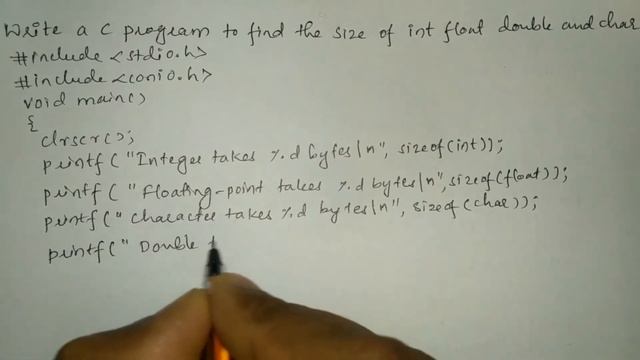 Write a C program to find the size of int float double and char
#include <stdio.h>
#include <conio.h>
void main()
{
clrscr();
printf("Integer takes %d bytes\n", sizeof(int));
printf("Floating-point takes %d bytes\n", sizeof(float));
printf("Character takes %d bytes\n", sizeof(char));
printf("Double t